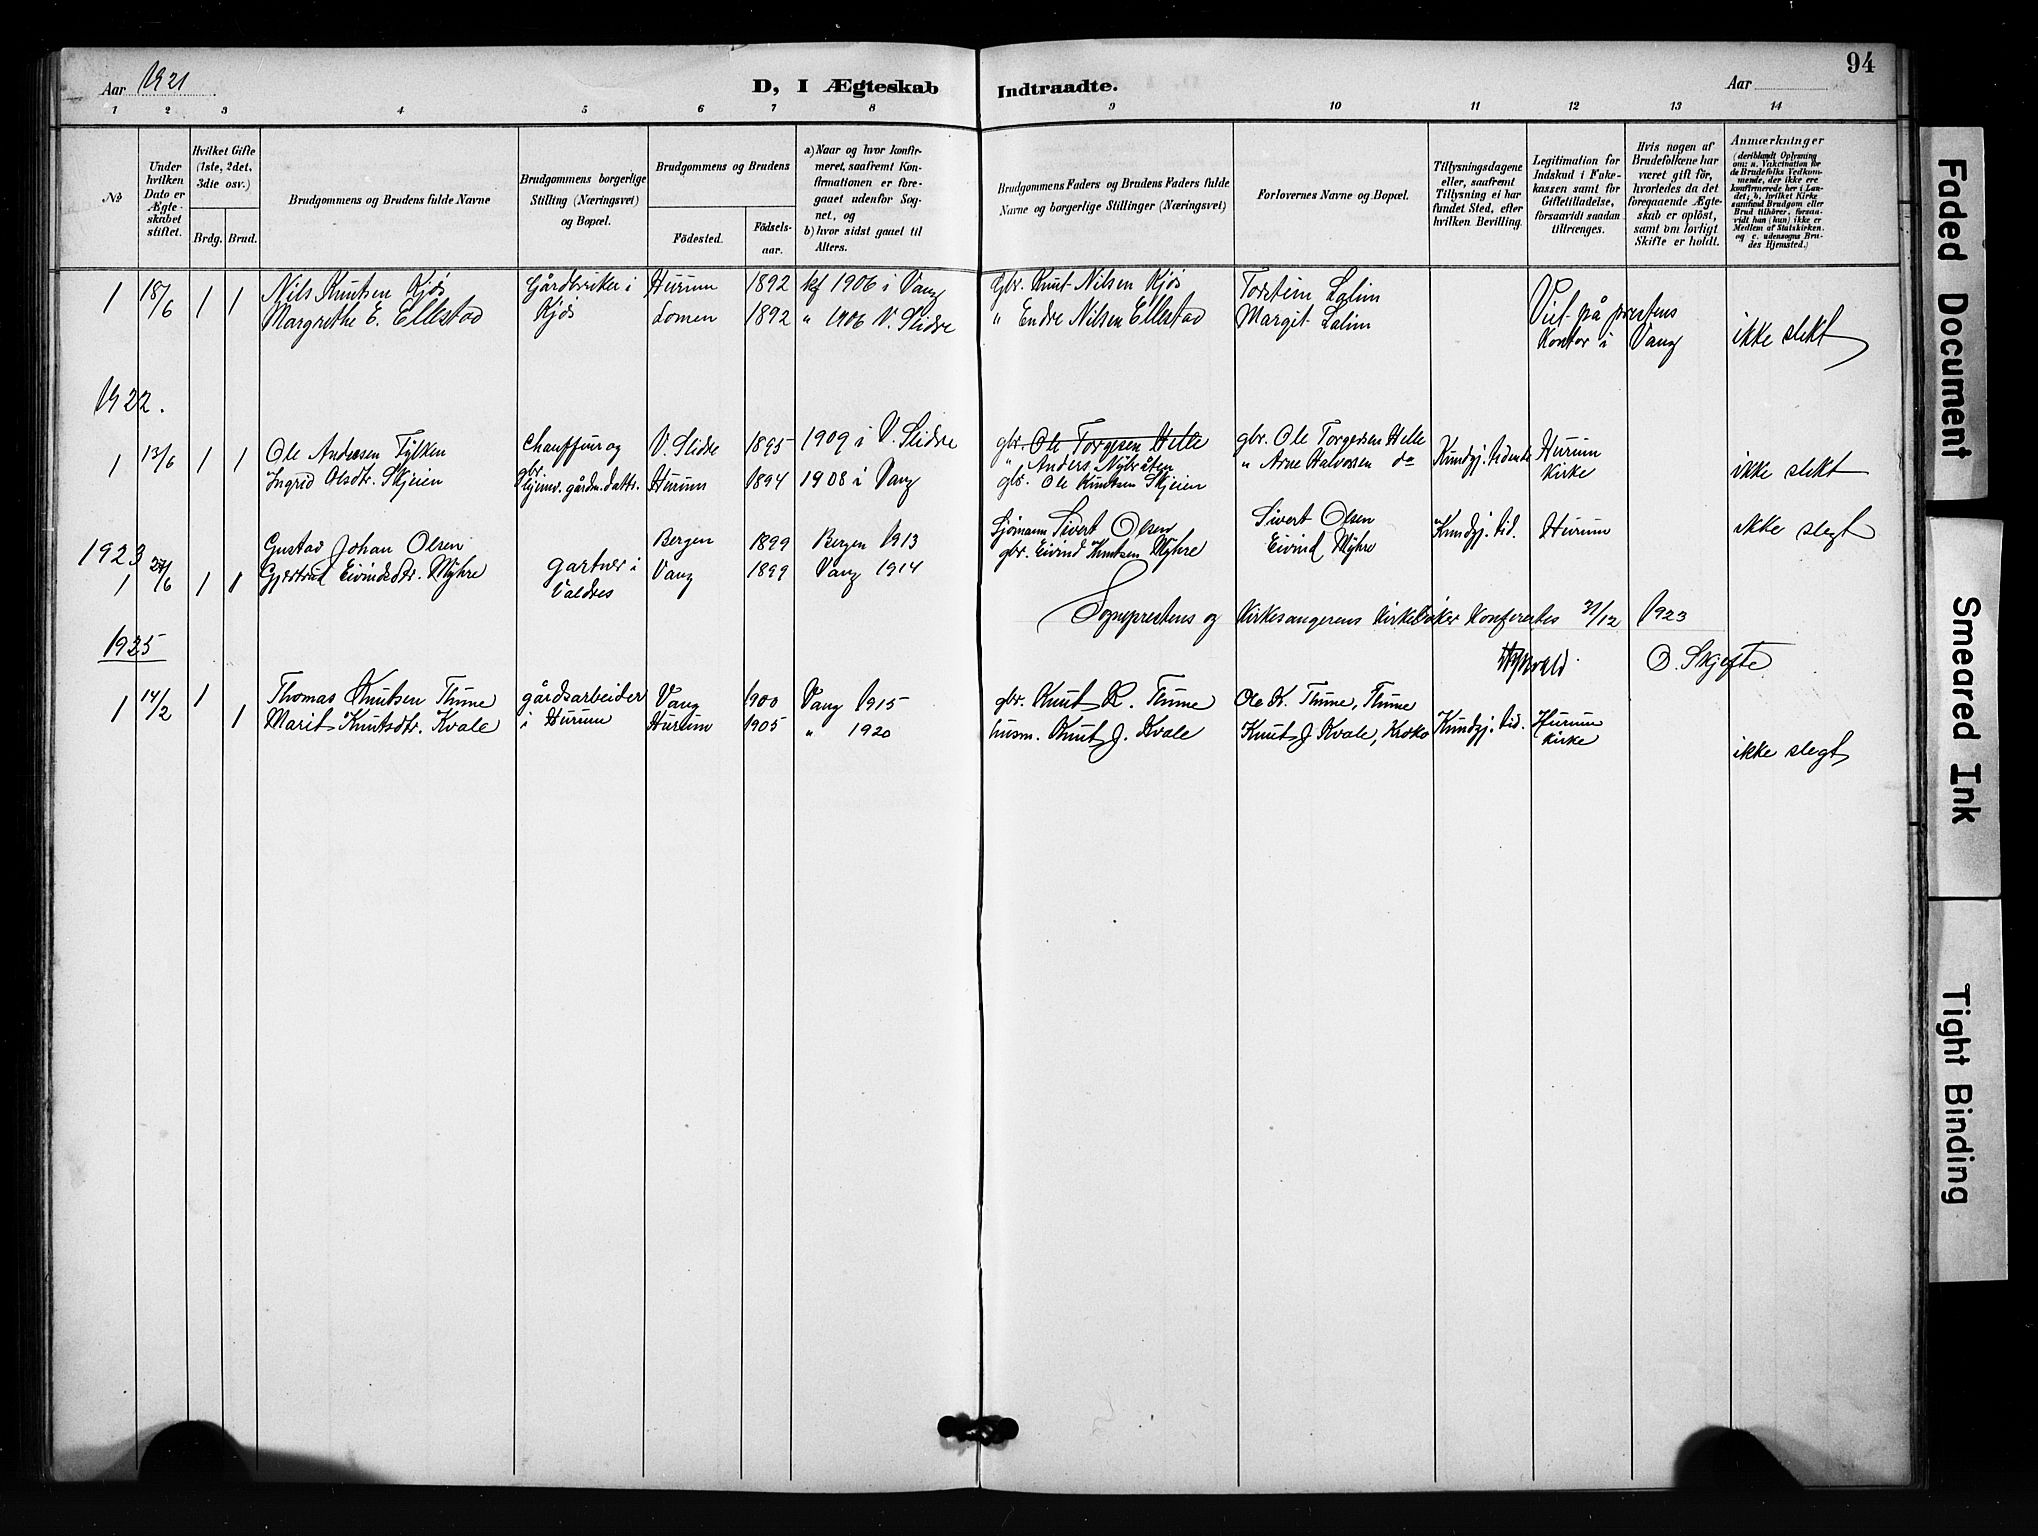 Aar 1921
D, I Ægteskab
Indtraadte.
Aar
94
1 2 3 4 5 6 7 8 9 10 11 12 13 14
No
Under hvilken Dato er Ægteskabet stiftet.
Hvilket Gifte (1ste, 2det, 3die osv.)
Brdg. Brud.
Brudgommens og Brudens fulde Navne
Brudgommens borgerlige Stilling (Næringsvei) og Bopæl.
Brudgommens og Brudens
Fødested.
Fødsels-aar.
a) Naar og hvor konfir-
meret, saafremt Kon-
firmationen er fore-
gaaet udenfor Sog-
net, og
b) hvor sidst gaaet til
Alters.
Brudgommens Faders og Brudens Faders fulde
Navne og borgerlige Stillinger (Næringsvei)
Forlovernes Navne og Bopæl.
Tillysningsdagene
eller, saafremt
Tillysning ei har
fundet Sted, efter
hvilken Bevilling.
Legitimation for
Indskud i Enke-
kassen samt for
Giftetilladelse,
forsaavidt saadan
tiltrænges.
Hvis nogen af
Brudefolkene har
været gift før,
hvorledes da det
foregaaende Ægte-
skab er opløst,
samt om lovligt
Skifte er holdt.
Anmærkninger
(deriblandt Oplysning
om: a. Vakcination for
de Brudefolks Vedkom-
mende, der ikke ere
konfirmerede her i Lan-
det; b. hvilket Kirke
samfund Brudgom eller
Brud tilhører, forsaa-
vidt han (hun) ikke er
Medlem af Statskirken.
og c. udensogns Bru-
des Hjemsted.)
1 18/6 1 1 Nils Knutsen Kjøs Gårdbruker i Hurum 1892 kf 1906 i Vang Gbr. Knut Nilsen Kjøs Torstein Lalim
Margrethe E. Ellestad Kjøs Lomen 1892 " 1906 V. Slidre " Endre Nilsen Ellestad Margit Lalim Viet på prestens
Kontor i Vang ikke slekt
1922.
1 13/6 1 1 Ole Andersen Tylken Chauffør og V. Slidre 1895 1909 i V. Slidre gbr. Ole Torgersen Helle gbr. Ole Torgersen Helle Kundgj. tidende Hurum
" Anders Nybråten " Arne Halvorsen do Kirke
Ingrid Olsdtr. Skjeien gbr. Hjemv. gårdm. dattr. Hurum 1894 1908 i Vang gbr. Ole Knutsen Skjeien ikke slekt
1923
1 27/6 1 1 Gustav Johan Olsen gartner i Bergen 1899 Bergen 1913 Sjømann Sivert Olsen Sivert Olsen Kundgj. tid. Hurum ikke slegt
Gjertrud Eivindsdtr. Myhre Valdres Vang 1899 Vang 1914 gbr. Eivind Knutsen Myhre Eivind Myhre
Sogneprestens og Kirkesangerens Kirkebøker Konferertes 31/12 1923
O. Skjefte
1925
1 14/2 1 Thomas Knutsen Thune gårdsarbeider Vang 1900 Vang 1915 gbr. Knut R. Thune Ole K. Thune, Thune
1 Marit Knutsdtr. Kvale i Hurum Hurum 1905 " 1920 husm. Knut J. Kvale Knut J. Kvale, Kroko Kundgj. tid. Hurum
Kirke
ikke slegt
Faded Document
Smeared Ink
Tight Binding